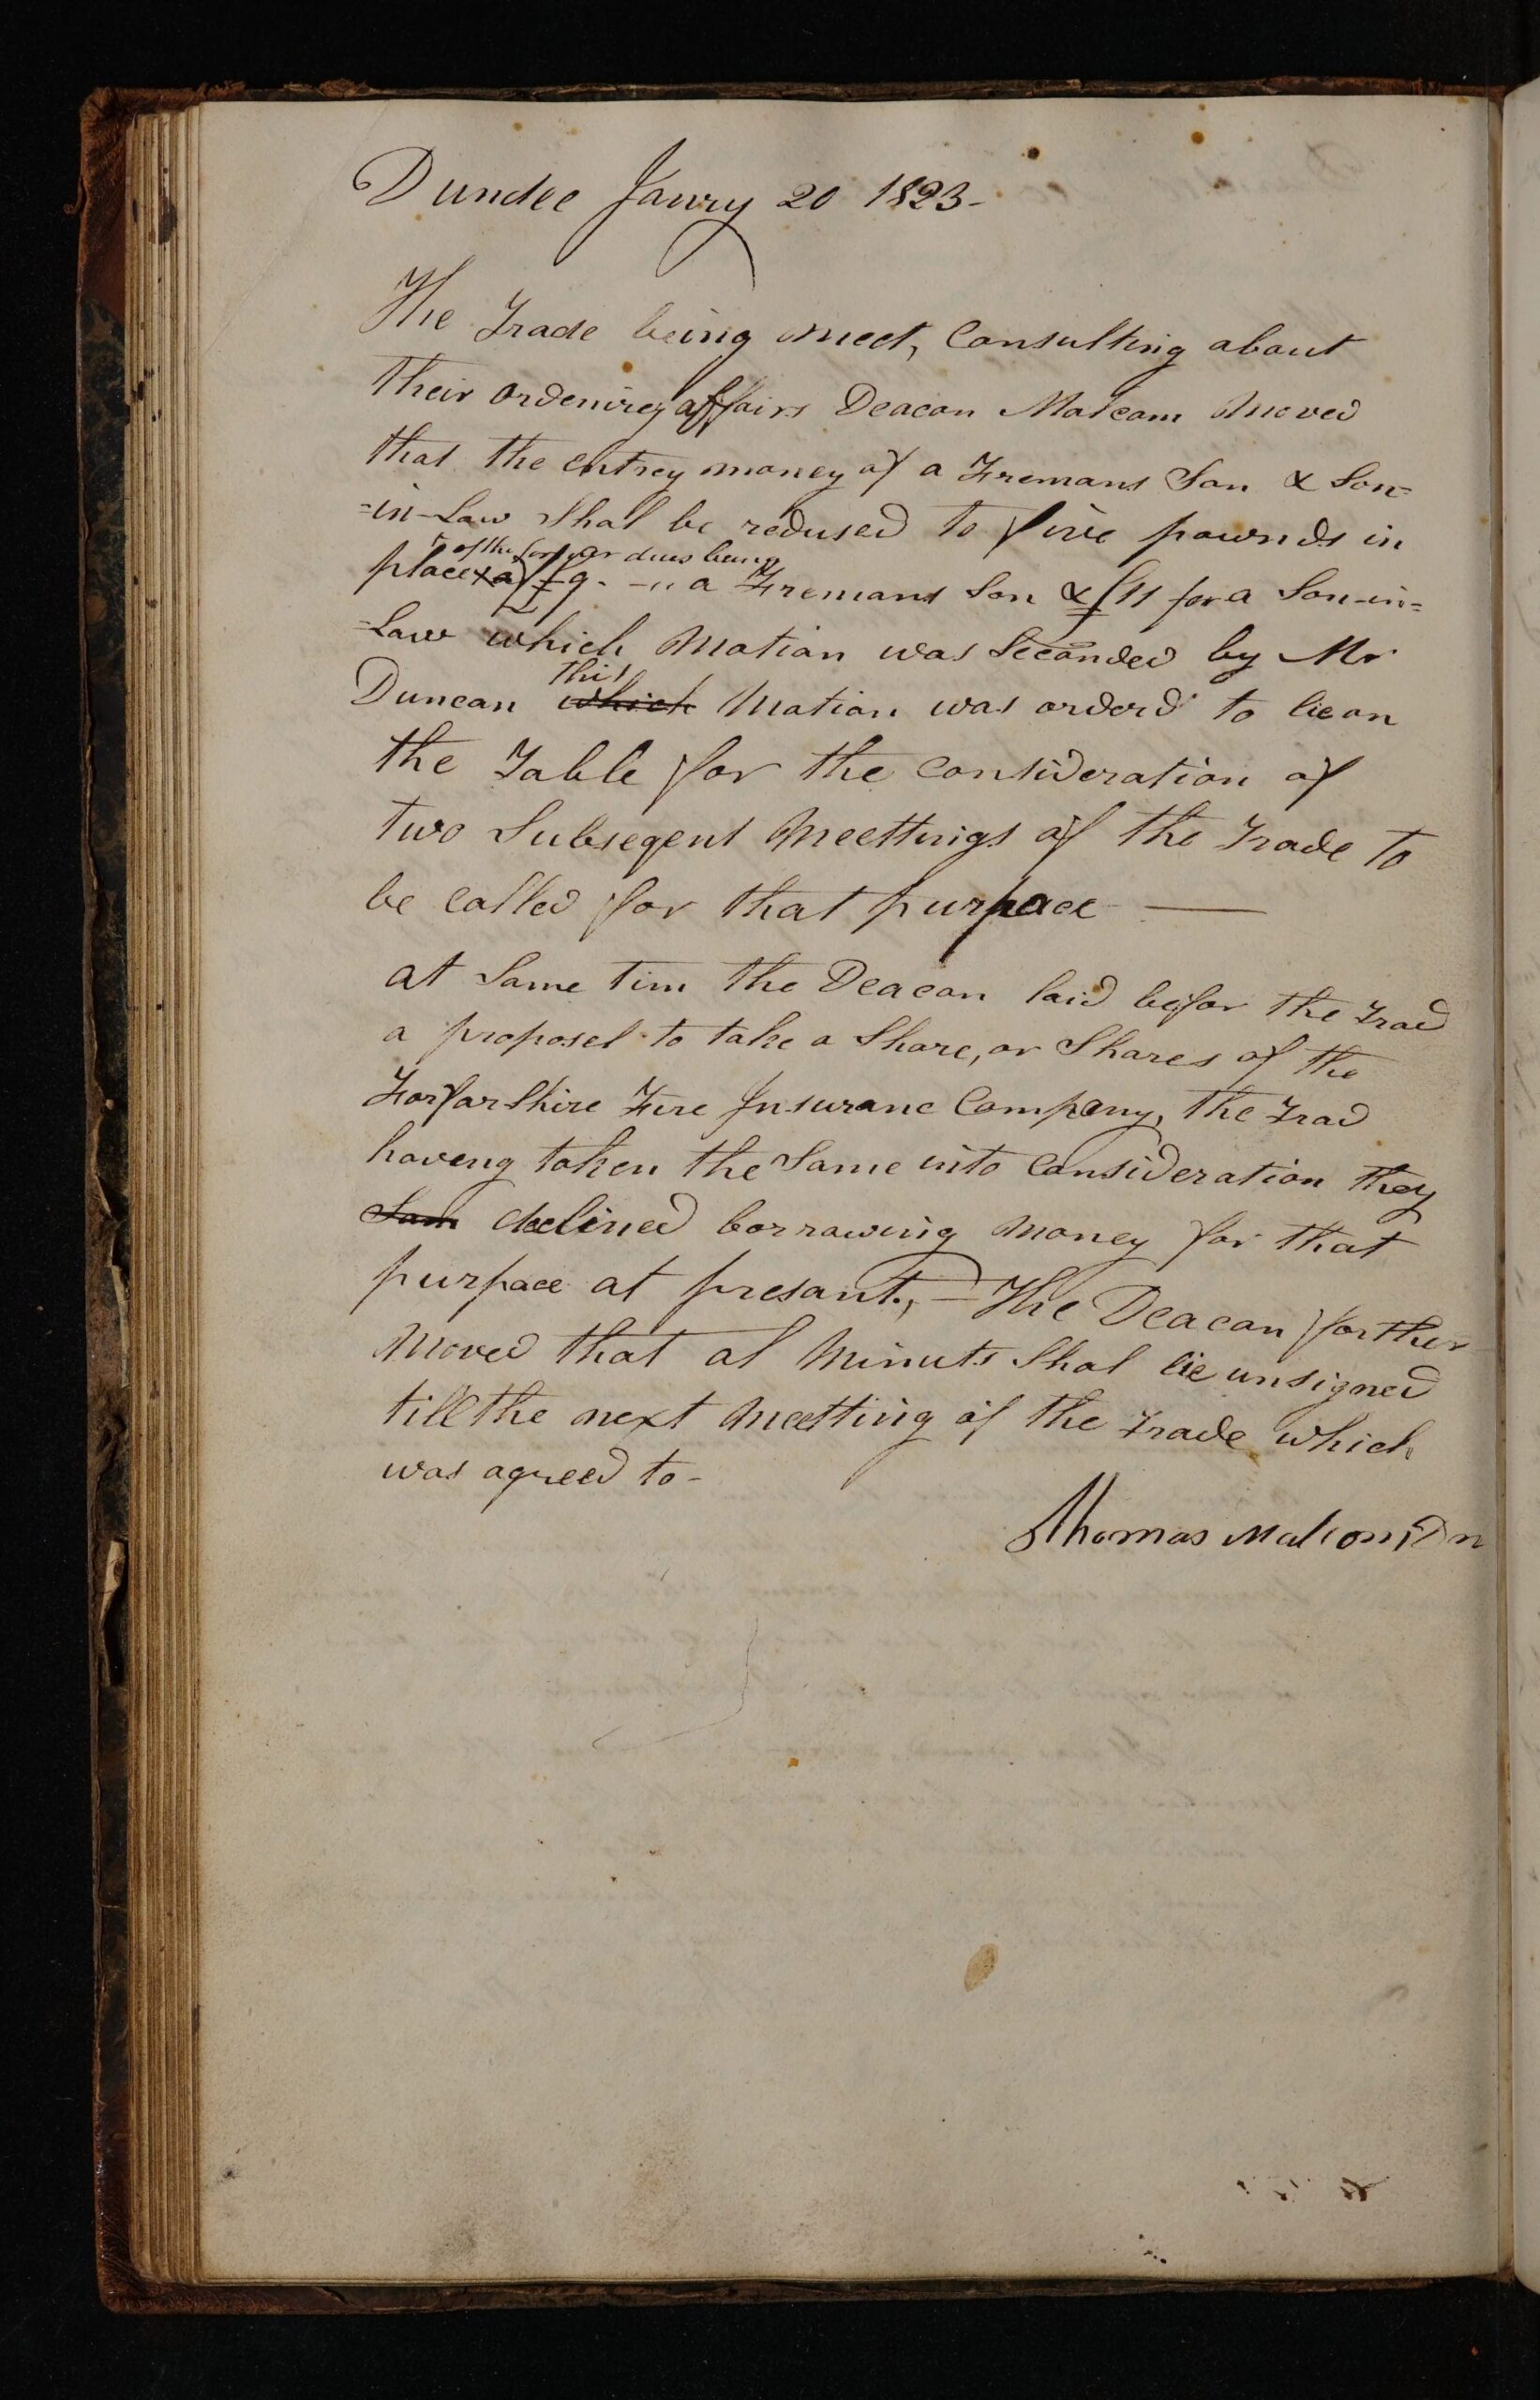 Dundee Janry 20 1823-
The Trade being meet, Consulting about
their ordenirey affairs Deacon Malcom Moved
that the entrey money of a Fremans Son & Son=
=in-Law Shal be redused to five pownds in
of the former dues being
place £9 - a Fremans Son & £11 for a Son-in=
=Law which Motion was Seconded by Mr
this
Duncan which Motion was orderd to lie on
the Table for the Consideration of
two Subseqent Meettings of the Trade to
be Called for that purpace —
at Same tim the Deacon laid befor the Trad
a proposel to take a Share, or Shares of the
Forfar Shire Fire Insuranc Company, the Trad
haveng taken the Same into Consideration they
Sam declined borrowing Money for that
purpace at presant, — The Deacon forther
Moved that al Minuts Shal lie unsigned
till the next Meetting of the Trade which
was agreed to -
Thomas Malcom Dn